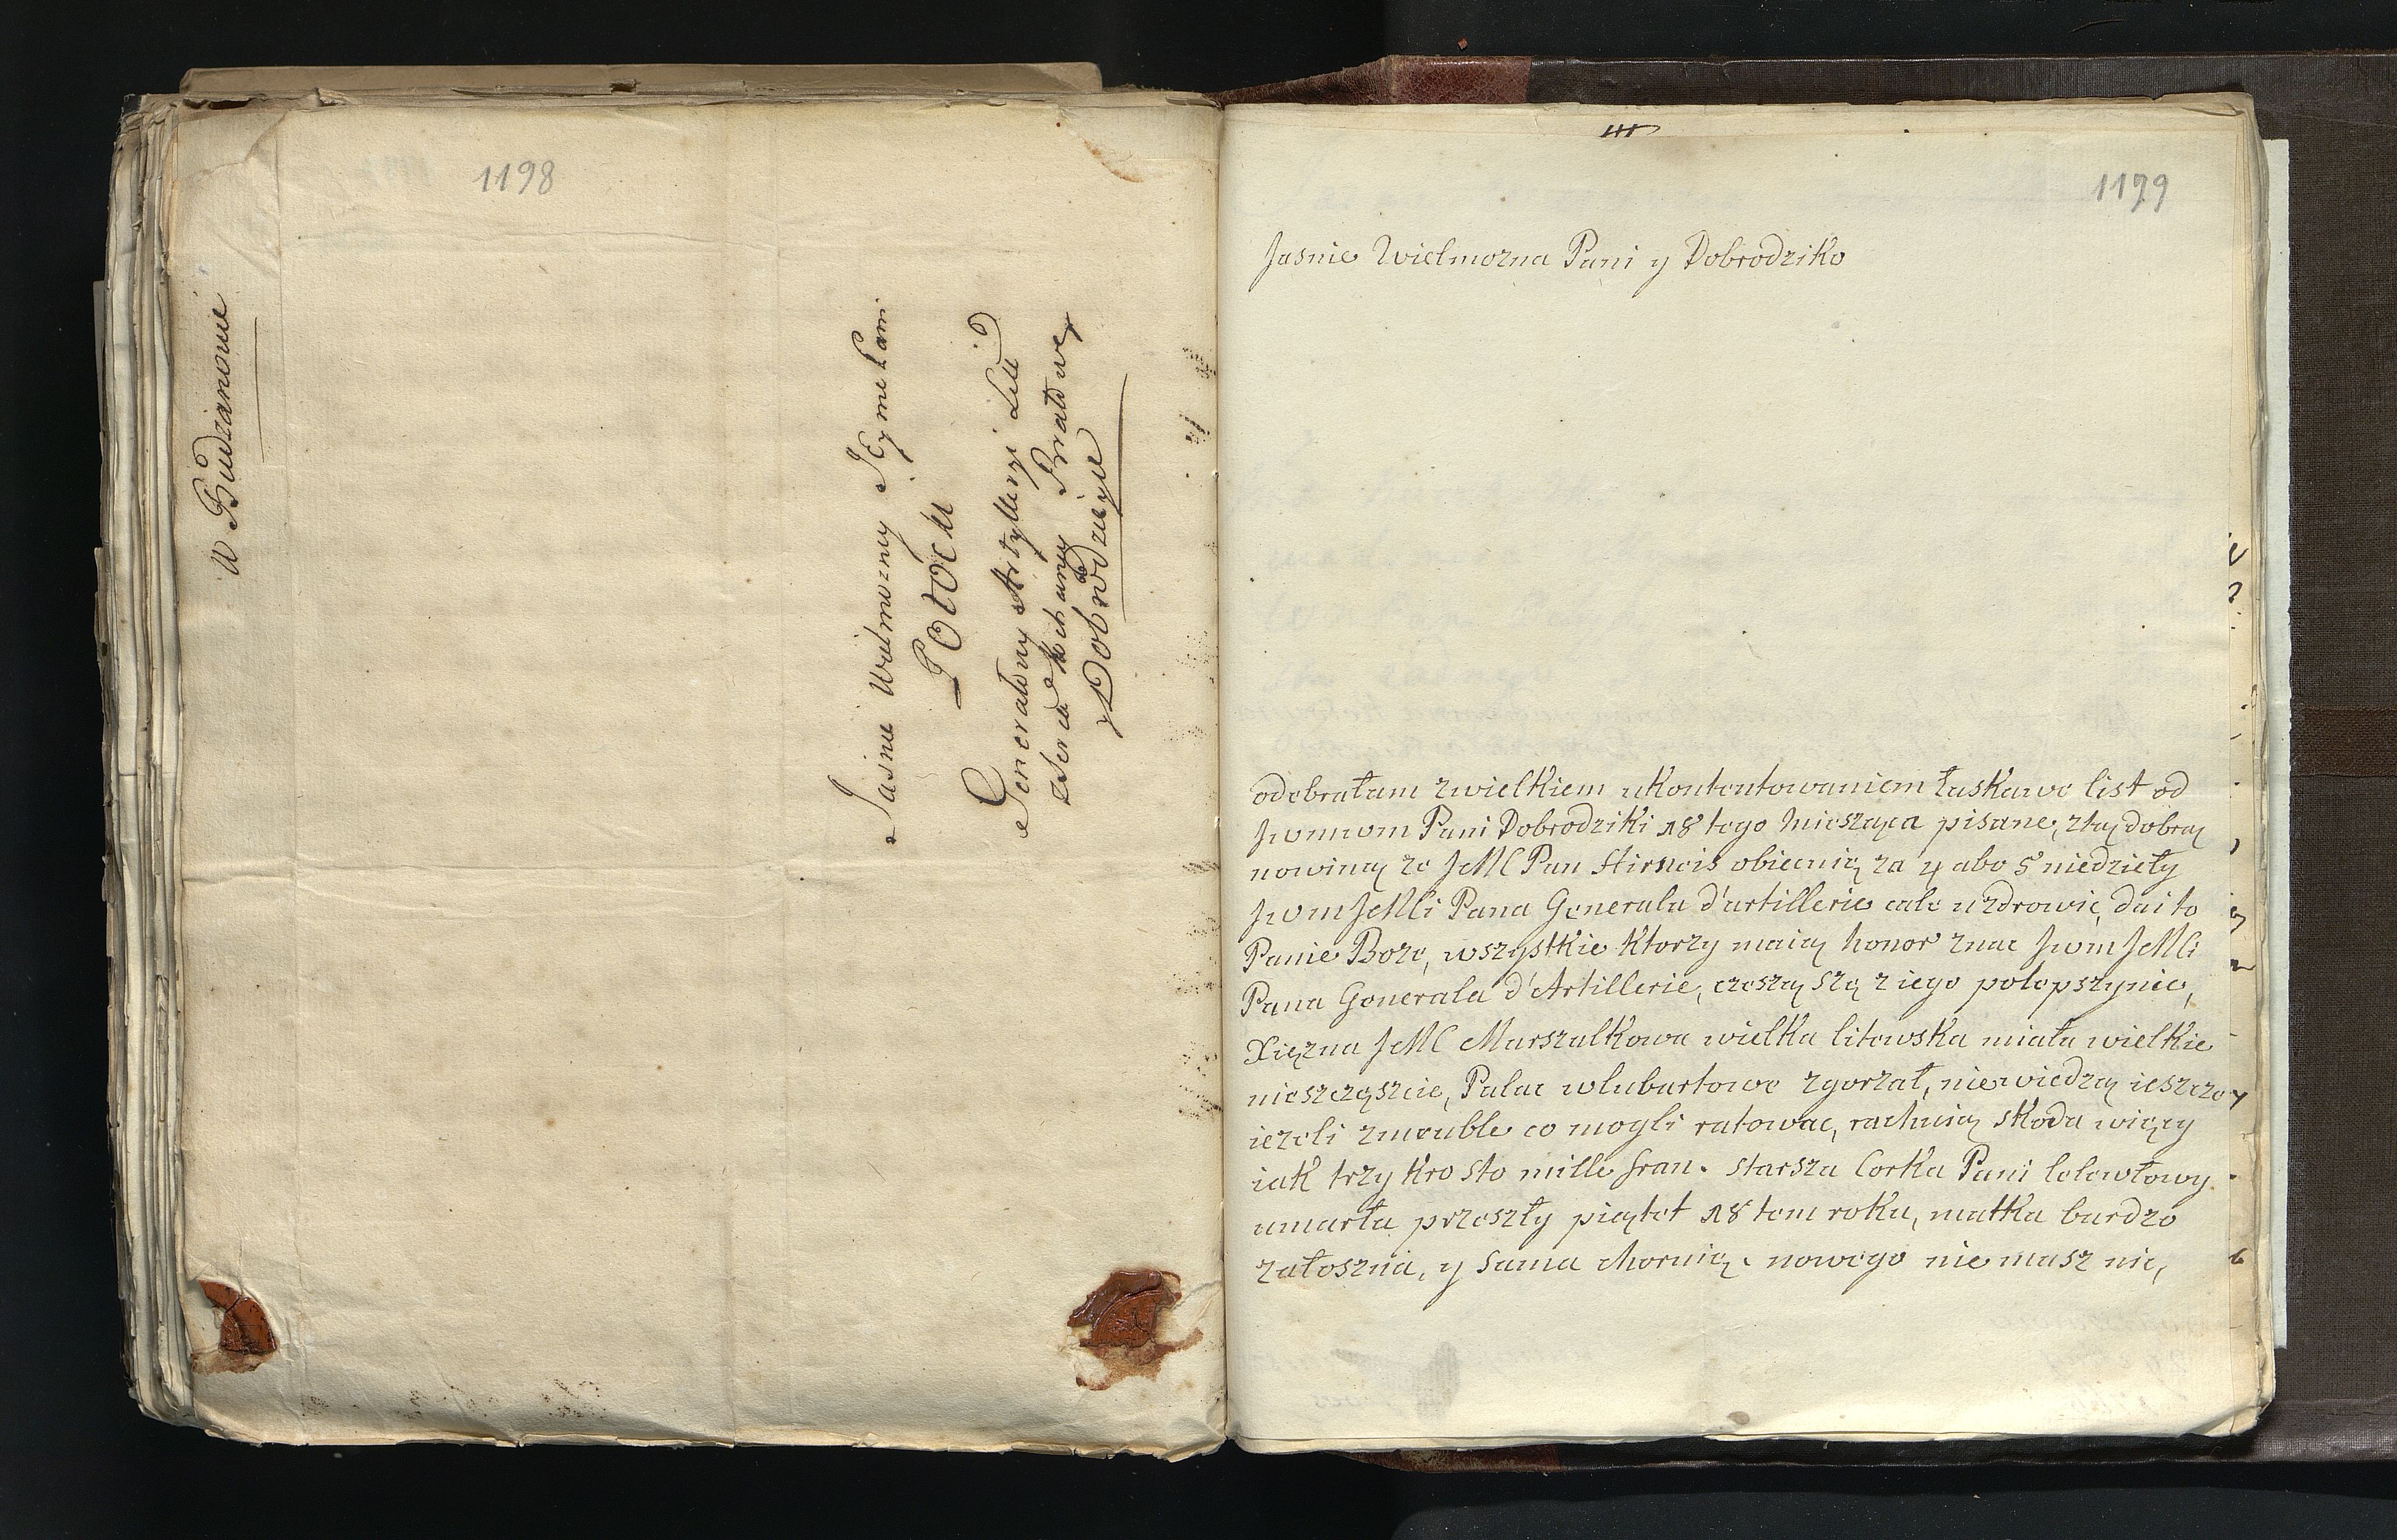 1198
w Budzanowie
Jasnie Wielmozny Jeymci Pani
Potocki
Generałowy Artylleryi Litt
Dobrodzieyce
1199
Jasnie Wielmozna Pani y Dobrodziko
odebrałam zwielkiem ukontentowaniem łaskawe list od
Jwmwm Pani Dobrodziki 18 tego Miesząca pisane, ztą dobrą
nowiną ze JcMC Pan Hirneis obiecuię za 4 abo 5 niedzieły
JwmJcMCi Pana Generala d'artillerie cale uzdrowic, dai to
Panie Boze, wszystkie Ktorzy maią honor znac JwmJcMCi
Pana Generala d'Artillerie, czeszą szę z iego polopszynie,
Xięzna JcMC Marszalkowa wielka litewska miała wielkie
nieszczęszcie, Palac wlubartowe zgorzał, niewiedzą ieszcze
iezeli zmeuble co mogli ratowac, rachuią skoda więcy
iak trzy Kro sto mille fran. starsza Corka Pani lolewłowy
umarła przeszły piątet 18 tem roku, matka bardzo
załoszna, y sama chornię. nowego nie masz nic,